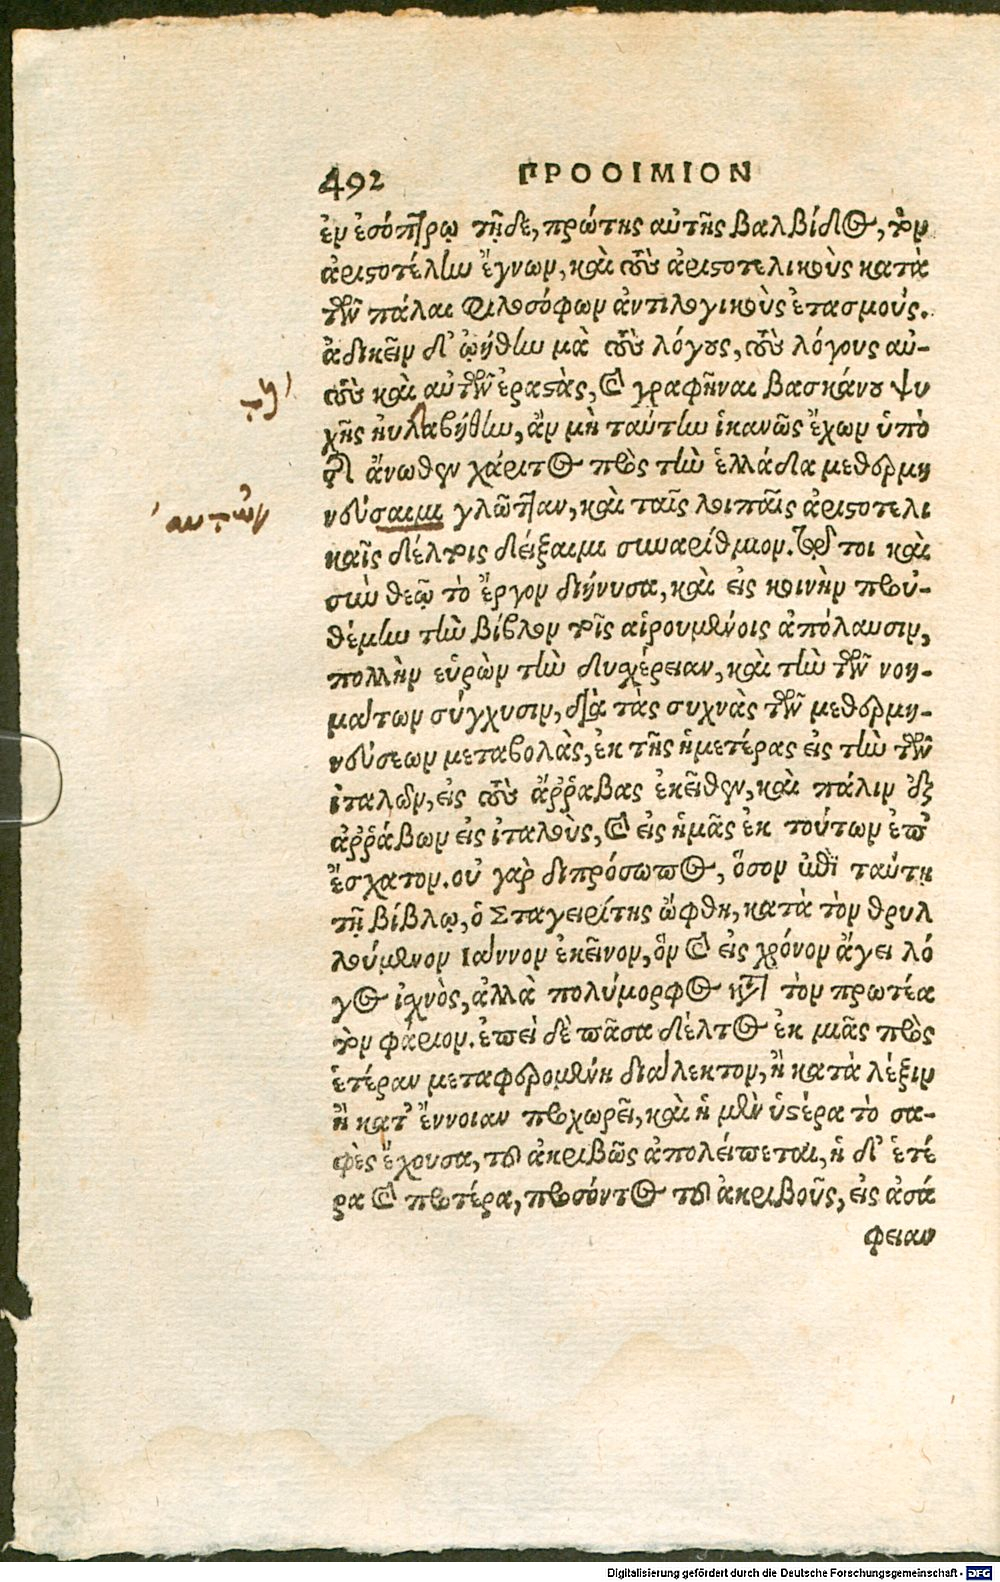 492 ΠΡΟΟΙΜΙΟΝ
ἐν ἐσόπτρῳ τῇδε, πρώτης αὐτῆς βαλβίδος, τὸν
ἀριστοτέλην ἔγνων, καὶ τοὺς ἀριστοτελικοὺς κατὰ
τῶν πάλαι φιλοσόφων ἀντιλογικοὺς ἐτασμούς.
ἀδικεῖν δ' ᾠήθην μὰ τοὺς λόγους, τοὺς λόγους αὐ-
τοὺς καὶ αὐτῶν ἐραστὰς, καὶ γραφῆναι βασκάνου ψυ
χῆς ηὐλαβήθην, ἂν μὴ ταύτην ἱκανῶς ἔχων ὑπὸ
τῆς ἄνωθεν χάριτος πρὸς τὴν ἑλλάδα μεθερμη
νεύσαιμι γλῶτταν, καὶ ταῖς λοιπαῖς ἀριστοτελι
καῖς δέλτοις δείξαιμι συναρίθμιον. τοι καὶ
σὺν θεῷ τὸ ἔργον διήνυσα, καὶ εἰς κοινὴν πρού-
θέμην τὴν βίβλον τοῖς αἱρουμένοις ἀπόλαυσιν,
πολλὴν εὑρὼν τὴν δυχέρειαν, καὶ τὴν τῶν νοη-
μάτων σύγχυσιν, διὰ τὰς συχνὰς τῶν μεθερμη-
νεύσεων μεταβολὰς, ἐκ τῆς ἡμετέρας εἰς τὴν τῶν
ἰταλῶν, εἰς τοὺς ἄῤῥαβας ἐκεῖθεν, καὶ πάλιν ἐξ
ἀῤῥάβων εἰς ἰταλοὺς, καὶ εἰς ἡμᾶς ἐκ τούτων ἐπ'
ἔσχατον. οὐ γὰρ διπρόσωπος, ὅσον ἐπὶ ταύτῃ
τῇ βίβλῳ, ὁ Σταγειρίτης ὤφθη, κατὰ τὸν θρυλ
λούμενον Ιάννον ἐκεῖνον, ὃν καὶ εἰς χρόνον ἄγει λό
γος ἰχνὸς, ἀλλὰ πολύμορφος κατὰ τὸν πρωτέα
τὸν φάριον. ἐπεὶ δὲ πᾶσα δέλτος ἐκ μιᾶς πρὸς
ἑτέραν μεταφερομένη διάλεκτον, ἢ κατὰ λέξιν
ἢ κατ' ἔννοιαν προχωρεῖ, καὶ ἡ μὲν ὑστέρα τὸ σα-
φὲς ἔχουσα, τοῦ ἀκριβῶς ἀπολείπεται, ἡ δ' ἑτέ
ρα καὶ προτέρα, προσόντος τοῦ ἀκριβοῦς, εἰς ἀσά
φειαν
αυτῶν
Digitalisierung gefördert durch die Deutsche Forschungsgemeinschaft - DFG